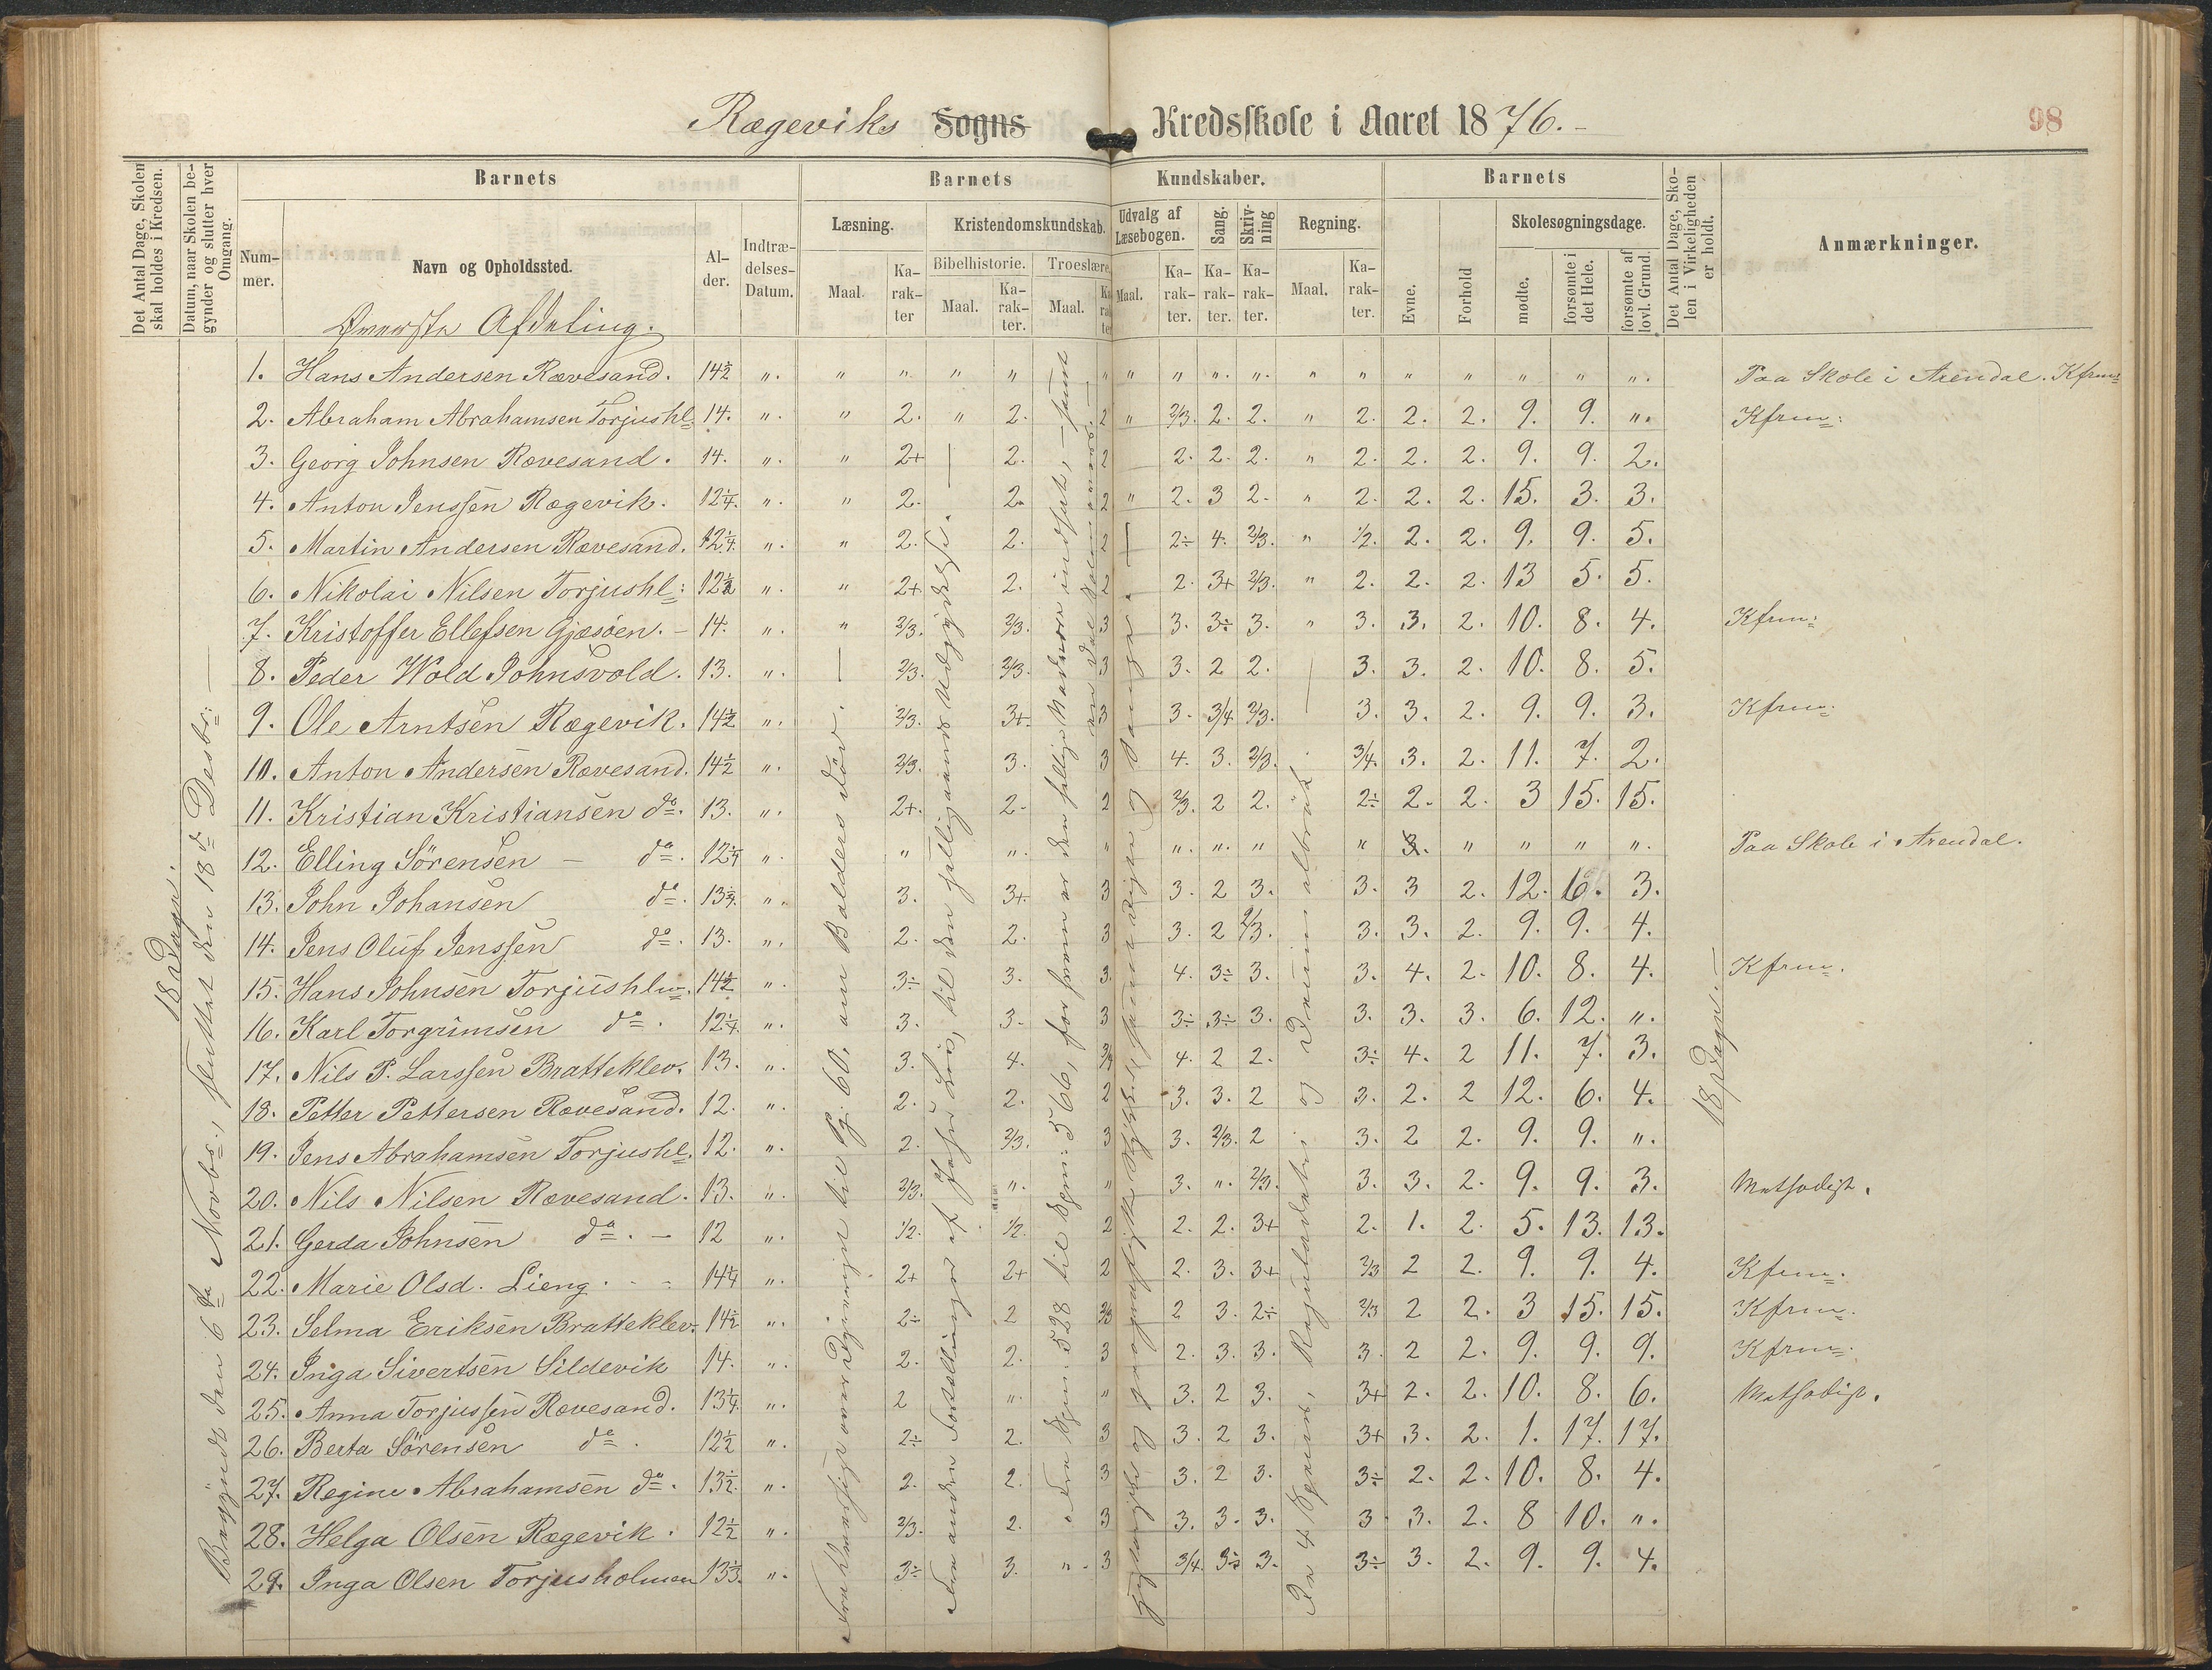 Rægeviks Sogns Kredsskole i Aaret 1876.
98
Det Antal Dage, Skolen skal holdes i Kredsen.
Datum, naar Skolen begynder og slutter hver Omgang.
Barnets
Nummer.
Navn og Opholdssted.
Alder.
Indtrædelses-Datum.
Barnets Kundskaber.
Læsning.
Maal.
Karakter
Kristendomskundskab.
Bibelhistorie.
Maal.
Karakter.
Troeslære.
Maal.
Karakter
Udvalg af Læsebogen.
Maal.
Karakter.
Sang.
Karakter.
Skrivning
Karakter.
Regning.
Maal.
Karakter.
Barnets
Evne.
Forhold
Skolesøgningsdage.
mødte.
forsømte i det Hele.
forsømte af lovl. Grund.
Det Antal Dage, Skolen i Virkeligheden er holdt.
Anmærkninger.
Øverste Afdeling.
18 Dage.
Begyndt den 6te Novbr., sluttet den 18de Desbr:
1. Hans Andersen Rævesand. 14½ " " " " " " " " " " " " " " " " " Paa Skole i Arendal. Kfrm:
2. Abraham Abrahamsen Torjushl: 14. " " 2. " 2. 2 " 2/3. 2. 2. " 2. 2. 2. 9. 9. " Kfrm:
3. Georg Johnsen Rævesand. 14. " " 2+ 2. 2 2. 2. 2. " 2. 2. 2. 9. 9. 2.
4. Anton Jenssen Rægevik. 12¼. " " 2. 2. 2 " 2. 3 2. " 2. 2. 2. 15. 3. 3.
5. Martin Andersen Rævesand. 12¼. " " 2. 2. 2 2÷ 4. 2/3. " 1/2. 2. 2. 9. 9. 5.
6. Nikolai Nilsen Torjushl: 12½ " " 2+ 2. 2 2. 3+ 2/3. " 2. 2. 2. 13 5. 5.
7. Kristoffer Ellefsen Gjæsøen. 14. " " 2/3. 2/3. 3 3. 3÷ 3. " 3. 3. 2. 10. 8. 4. Kfrm:
8. Peder Wold Johnsvold. 13. " 2/3. 2/3. 3 3. 2 2. 3. 3. 2. 10. 8. 5.
9. Ole Arntsen Rægevik. 14½ " 2/3. 3+ 3 3. 3/4 2/3. 3. 3. 2. 9. 9. 3. Kfrm:
10. Anton Andersen Rævesand. 14½ " 2/3. 3. 3 4. 3. 2/3. 3/4. 3. 2. 11. 7. 2.
11. Kristian Kristiansen do. 13. " 2+. 2. 2 2/3. 2 2. 2÷ 2. 2. 3 15. 15.
12. Elling Sörensen do. 12¼ " " " " " " " " 3. " " " " Paa Skole i Arendal.
13. John Johansen do. 13¾. " 3. 3+. 3 3. 2 3. 3. 3 2. 12. 6. 3.
14. Jens Oluf Jenssen do. 13. " 2. 2. 3 3. 2 2/3. 3. 3. 2. 9. 9. 4.
15. Hans Johnsen Torjushlm. 14½ " 3÷ 3. 3. 4. 3÷ 3. 3. 4. 2. 10. 8. 4. Kfrm.
16. Karl Torgrimsen do. 12¼. " 3. 3. 3 3÷ 3÷ 3. 3. 3. 3. 6. 12. "
17. Nils P. Larssen Bratteklev. 13. " 3. 4. 3/4 4. 2 2. 3÷ 4. 2 11. 7. 3.
18. Petter Pettersen Rævesand. 12. " 2. 2. 2 3. 3. 2 3. 2. 2 12. 6. 4.
19. Jens Abrahamsen Torjushl. 12. " 2. 2/3. 3 3. 2/3. 2 3. 2 2. 9. 9. "
20. Nils Nilsen Rævesand. 13. " 2/3. " " 3. " 2/3. 3. 3. 2. 9. 9. 3. Methodist.
21. Gerda Johnsen do. 12 " 1/2. 1/2. 2 2. 2. 3+ 2. 1. 2. 5. 13. 13.
22. Marie Olsd. Lieng. 14¼ " 2+ 2+ 2 2. 3. 3+ 2/3 2 2. 9. 9. 4. Kfrm.
23. Selma Eriksen Bratteklev. 14½ " 2÷ 2 2/3 2 3. 2÷ 2/3 2 2. 3 15. 15. Kfrm.
24. Inga Sivertsen Sildevik 14. " 2. 2. 3 2. 3. 3. 3. 2 2. 9. 9. 9. Kfrm.
25. Anna Torjussen Rævesand. 13¼. " 2 " " 3. 2 3. 3+ 2. 2. 10. 8. 6. Methodist.
26. Berta Sörensen do. 12½ " 2÷ 2. 3 3. 2 3. 3+ 3. 2. 1. 17. 17.
27. Regine Abrahamsen do. 13½. " 2. 2. 3 3. 2 3. 3÷ 2. 2. 10. 8. 4.
28. Helga Olsen Rægevik. 12½ " 2/3. 2. 3 3. 3. 3. 3 3. 2. 8 10. "
29. Inga Olsen Torjusholmen 13⅓. " 3÷ 3. " 3 3/4. 3÷ 3. 3÷ 3. 2. 9. 9. 4.
til Pg. 60. om Balders död.
Fra Spm: 528 til Spm: 566,
De 4 Spesier, Reguladetri og Decimalbrök
18 Dage.